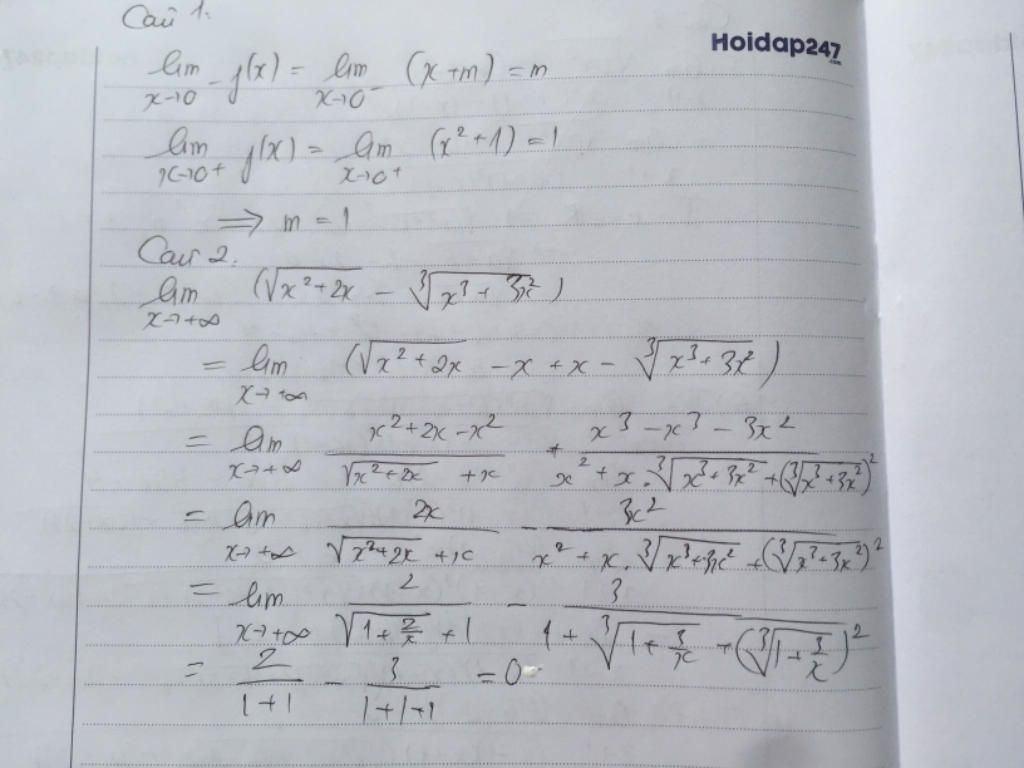 Câu 1:
Hoidap247
.com
lim x→0⁻ f(x) = lim x→0⁻ (x+m) = m
lim x→0⁺ f(x) = lim x→0⁺ (x²+1) = 1
⟹ m = 1
Câu 2.
lim x→+∞ (√(x²+2x) − ∛(x³+3x²))
= lim x→+∞ (√(x²+2x) − x + x − ∛(x³+3x²))
= lim x→+∞ (x²+2x−x²)/(√(x²+2x) + x) + (x³−x³−3x²)/(x² + x.∛(x³+3x²) + (∛(x³+3x²))²)
= lim x→+∞ 2x/(√(x²+2x) + x) − 3x²/(x² + x.∛(x³+3x²) + (∛(x³+3x²))²)
= lim x→+∞ 2/(√(1+2/x) + 1) − 3/(1 + ∛(1+3/x) + (∛(1+3/x))²)
= 2/(1+1) − 3/(1+1+1) = 0